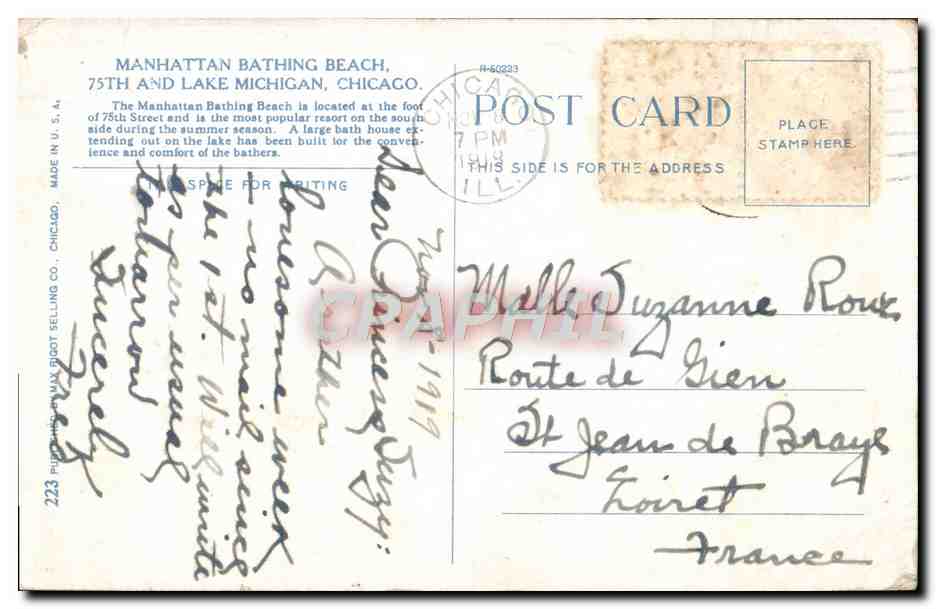 MANHATTAN BATHING BEACH,
75TH AND LAKE MICHIGAN, CHICAGO.
The Manhattan Bathing Beach is located at the foot
of 75th Street and is the most popular resort on the south
side during the summer season. A large bath house ex-
tending out on the lake has been built for the conven-
ience and comfort of the bathers.
THIS SPACE FOR WRITING
R-50223
POST CARD
THIS SIDE IS FOR THE ADDRESS
PLACE
STAMP HERE
CHICAGO
7 PM
1919
ILL.
223 PUBLISHED BY MAX RIGOT SELLING CO., CHICAGO, MADE IN U. S. A.
Nov. 1919
Dear Princess Suzy:
Another
lonesome week
- no mail since
the 1st. Will write
as per usual
tomarrow
Sincerely
Fred
Mlle Suzanne Roux
Route de Gien
St Jean de Braye
Loiret
France
CPAPHIL